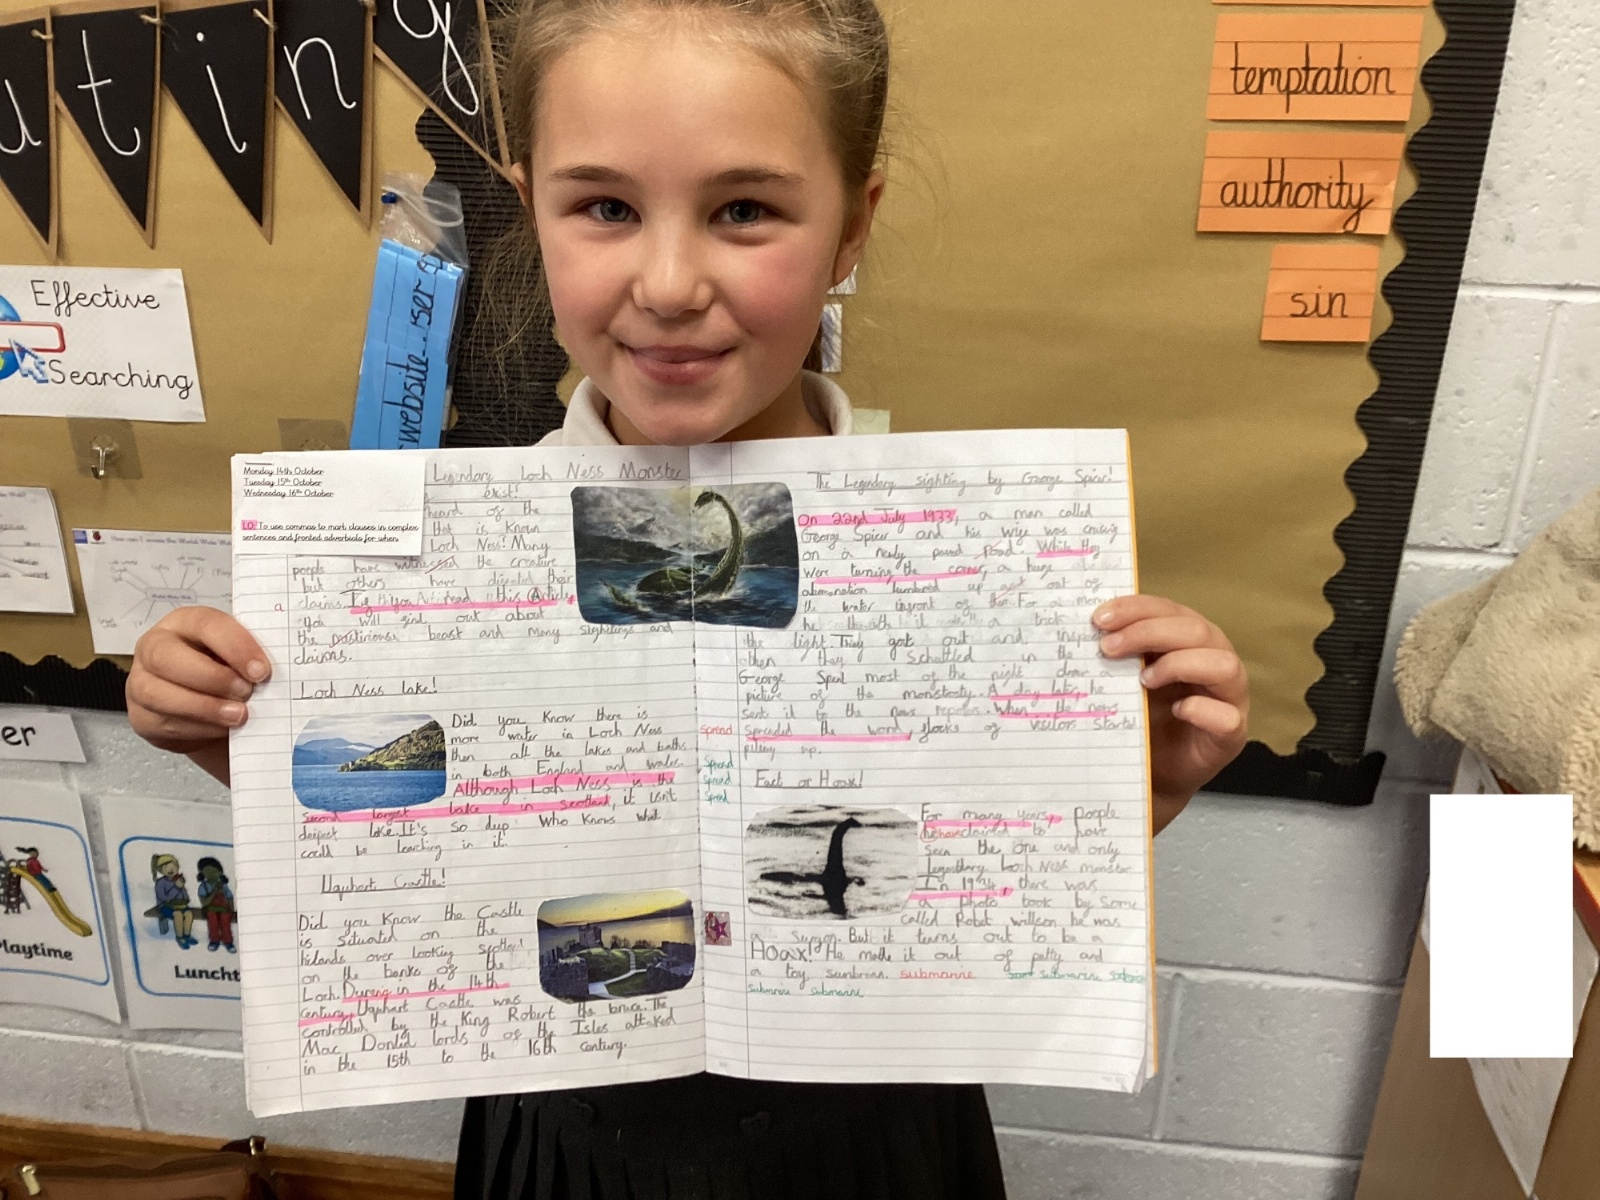 uting
temptation
authority
sin
Effective
Searching
website
er
Playtime
Luncht
Monday 14th October
Tuesday 15th October
Wednesday 16th October
LO: To use commas to mark clauses in complex
sentences and fronted adverbials for when.
Legendary Loch Ness Monster
exist!
heard of the
that is known
Loch Ness! Many
people have witnessed the creature
but others have disputed their
claims. this Article,
a
you will find out about
the beast and many sightings and
claims.
Loch Ness lake!
Did you know there is
more water in Loch Ness
then all the lakes and baths
in both England and wales
Although Loch Ness is the
second largest lake in scotland, it isn't
deepest lake It's so deep who knows what
could be learching in it.
Uquhart Castle!
Did you know the Castle
is situated on the
over looking
on the banks of the
Loch. During in the 14th
century, Uquhart Castle was
controlled by the King Robert the bruce. The
Mac Donled lords of the Isles attaked
in the 15th to the 16th century.
The Legendary sighting by George Spicer!
On 22nd July 1933, a man called
George Spicer and his wife was
on a newly paved road. While they
were turning the corner, a huge
up out of
the water infront of
he it a trick
the light. They got out and
then they in the
George Spent most of the night draw a
picture of the A day later, he
sent it to the news When the news
spreaded the word, flocks of visitors started
spread
pilling up.
Spread
Spread
Spread
Fact or Hoax!
For many years, people
claimed to have
seen the one and only
Legendary Loch Ness monster
In 1934, there was
a photo took by some
called Robet willson he was
a But it turns out to be a
HOax! He made it out of putty and
a toy submarine
submarine submarine